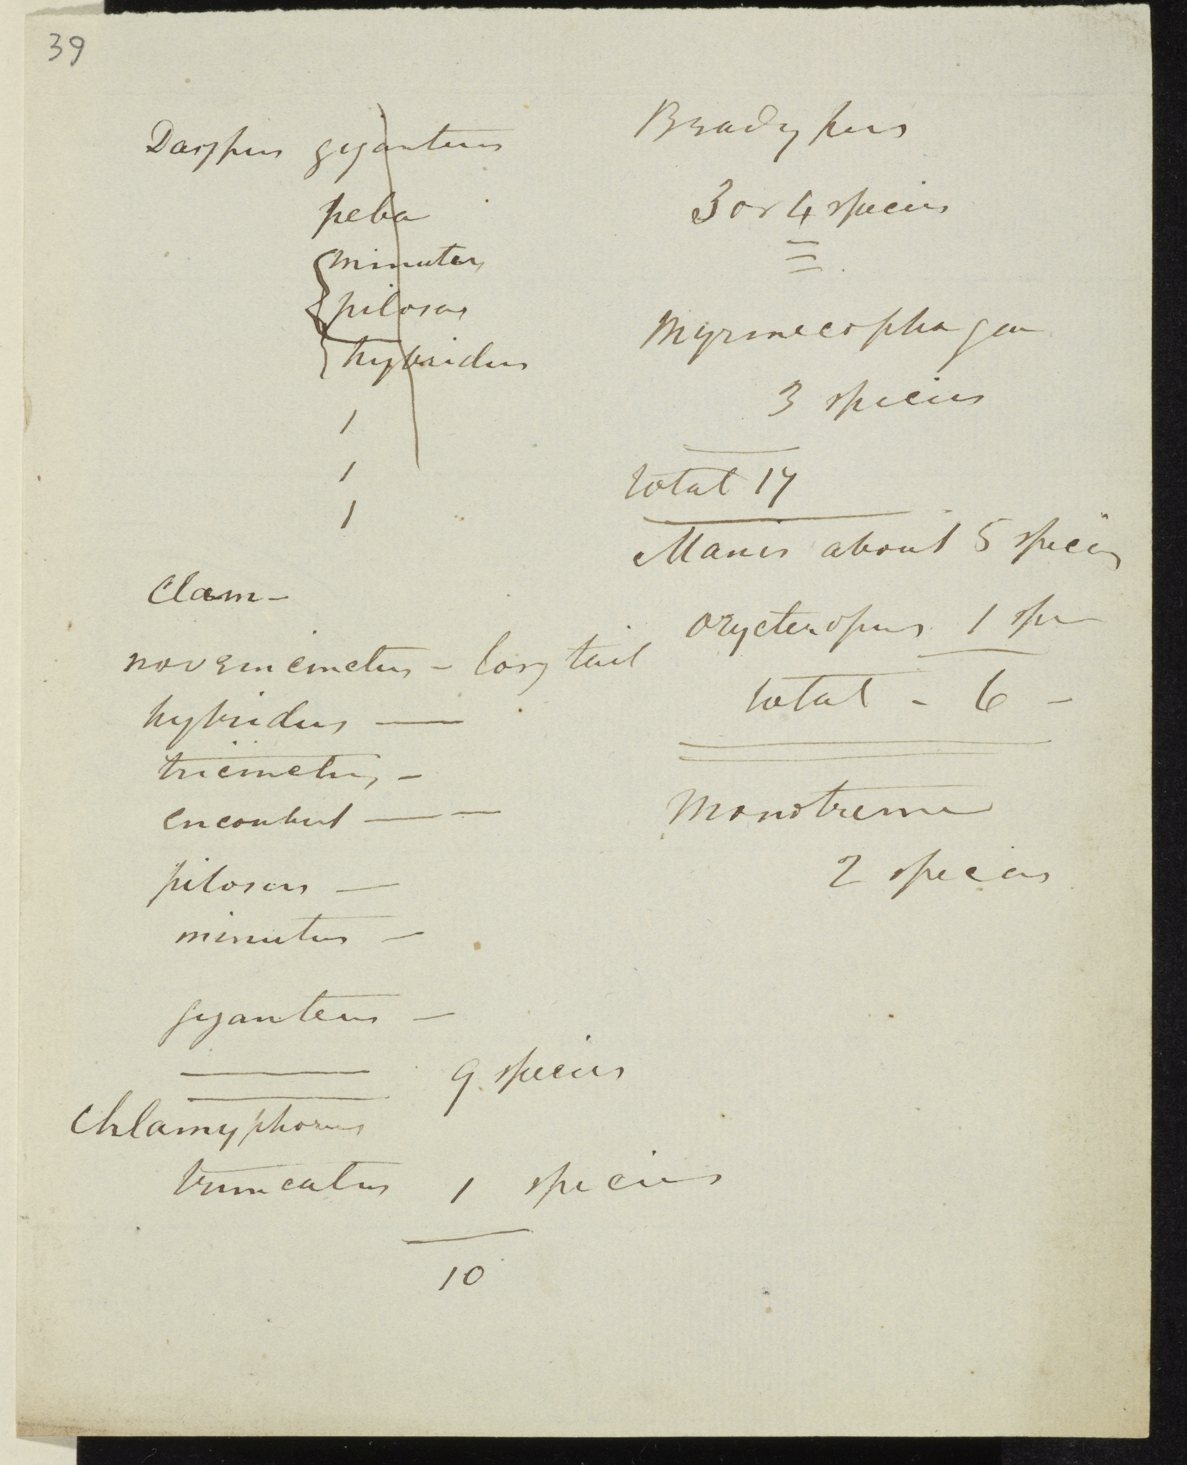 39
Dasypus giganteus
peba
minutus
pilosus
hybridus
1
1
1
Clam—
novemcinctus – long tail
hybridus —
tricinctus, –
encoubert — —
pilosus —
minutus –
giganteus –
9 species
Chlamyphorus
truncatus 1 species
10
Bradypus
3 or 4 species
Myrmecophaga
3 species
total 17
Manis about 5 species
orycteropus 1 sp
total - 6 -
Monotreme
2 species